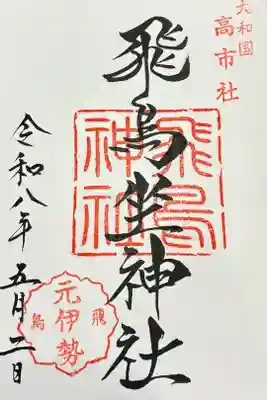 大和国
高市社
飛鳥坐神社
飛鳥
神社
令和八年五月二日
飛鳥
元伊勢